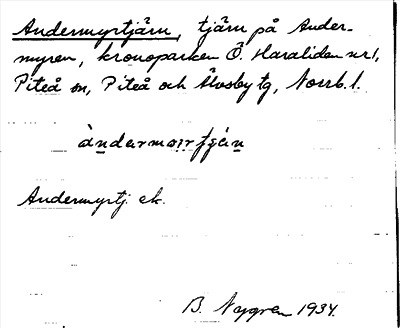 Andermyrtjärn, tjärn på Ander-
myren, kronoparken Ö. Haraliden nr 1,
Piteå sn, Piteå och Älvsby tg, Norrb. l.
àndermoirtjén
Andermyrtj. ek.
B. Nygren 1934.